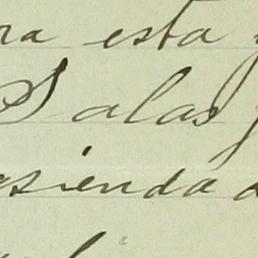 ra esta
Salas
sienda